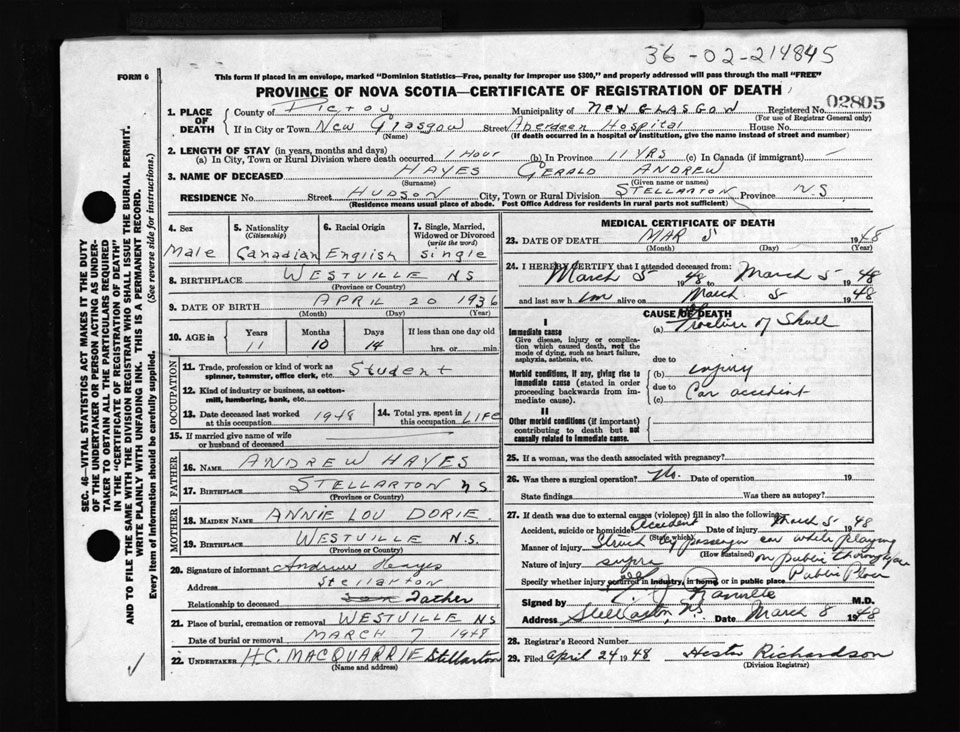 36-02-214845
FORM 6
This form if placed in an envelope, marked "Dominion Statistics—Free, penalty for improper use $300," and properly addressed will pass through the mail "FREE"
PROVINCE OF NOVA SCOTIA—CERTIFICATE OF REGISTRATION OF DEATH
1. PLACE OF DEATH
County of PICTOU Municipality of NEW GLASGOW Registered No. 02805
(For use of Registrar General only)
If in City or Town New Glasgow Street Aberdeen Hospital House No.
(Name) (If death occurred in a hospital or institution, give the name instead of street and number)
2. LENGTH OF STAY (in years, months and days)
(a) In City, Town or Rural Division where death occurred 1 Hour (b) In Province 11 YRS (c) In Canada (if immigrant) —
3. NAME OF DECEASED HAYES GERALD ANDREW
(Surname) (Given name or names)
RESIDENCE No. Street HUDSON City, Town or Rural Division STELLARTON Province NS
(Residence means usual place of abode. Post Office Address for residents in rural parts not sufficient)
4. Sex
Male
5. Nationality
(Citizenship)
Canadian
6. Racial Origin
English
7. Single, Married, Widowed or Divorced
(write the word)
Single
8. BIRTHPLACE WESTVILLE N S
(Province or Country)
9. DATE OF BIRTH APRIL 20 1936
(Month) (Day) (Year)
10. AGE in
Years Months Days If less than one day old
11 10 14 hrs. or min.
OCCUPATION
11. Trade, profession or kind of work as
spinner, teamster, office clerk, etc. Student
12. Kind of industry or business, as cotton-
mill, lumbering, bank, etc.
13. Date deceased last worked
at this occupation 1948
14. Total yrs. spent in
this occupation LIFE
15. If married give name of wife
or husband of deceased
FATHER
16. NAME ANDREW HAYES
17. BIRTHPLACE STELLARTON NS
(Province or Country)
MOTHER
18. MAIDEN NAME ANNIE LOU DORIE.
19. BIRTHPLACE WESTVILLE N.S.
(Province or Country)
20. Signature of informant Andrew Hayes
Address Stellarton
Relationship to deceased son Father
21. Place of burial, cremation or removal WESTVILLE NS
Date of burial or removal MARCH 7 1948
22. UNDERTAKER H.C. MACQUARRIE Stellarton
(Name and address)
MEDICAL CERTIFICATE OF DEATH
23. DATE OF DEATH MAR 5 1948
(Month) (Day) (Year)
24. I HEREBY CERTIFY that I attended deceased from:
March 5 1948 to March 5 1948
and last saw h im alive on March 5 1948
CAUSE OF DEATH
I
Immediate cause
Give disease, injury or complica-
tion which caused death, not the
mode of dying, such as heart failure,
asphyxia, asthenia, etc.
(a) Fracture of Skull
due to
Morbid conditions, if any, giving rise to
immediate cause (stated in order
proceeding backwards from im-
mediate cause).
(b) injury
due to
(c) Car accident
II
Other morbid conditions (if important)
contributing to death but not
causally related to immediate cause.
25. If a woman, was the death associated with pregnancy?
26. Was there a surgical operation? No. Date of operation 19
State findings Was there an autopsy?
27. If death was due to external causes (violence) fill in also the following:
Accident, suicide or homicide? accident Date of injury March 5 1948
(State which)
Manner of injury Struck by passenger car while playing
(How sustained)
Nature of injury on public
Specify whether injury occurred in industry, in home, or in public place Public Place
Signed by M.D.
Address Stellarton, NS. Date March 8 1948
28. Registrar's Record Number
29. Filed April 24 1948 Hester Richardson
(Division Registrar)
SEC. 46—VITAL STATISTICS ACT MAKES IT THE DUTY
OF THE UNDERTAKER OR PERSON ACTING AS UNDER-
TAKER TO OBTAIN ALL THE PARTICULARS REQUIRED
IN THE "CERTIFICATE OF REGISTRATION OF DEATH"
AND TO FILE THE SAME WITH THE DIVISION REGISTRAR WHO SHALL ISSUE THE BURIAL PERMIT.
WRITE PLAINLY WITH UNFADING INK. THIS IS A PERMANENT RECORD.
Every item of information should be carefully supplied. (See reverse side for instructions.)